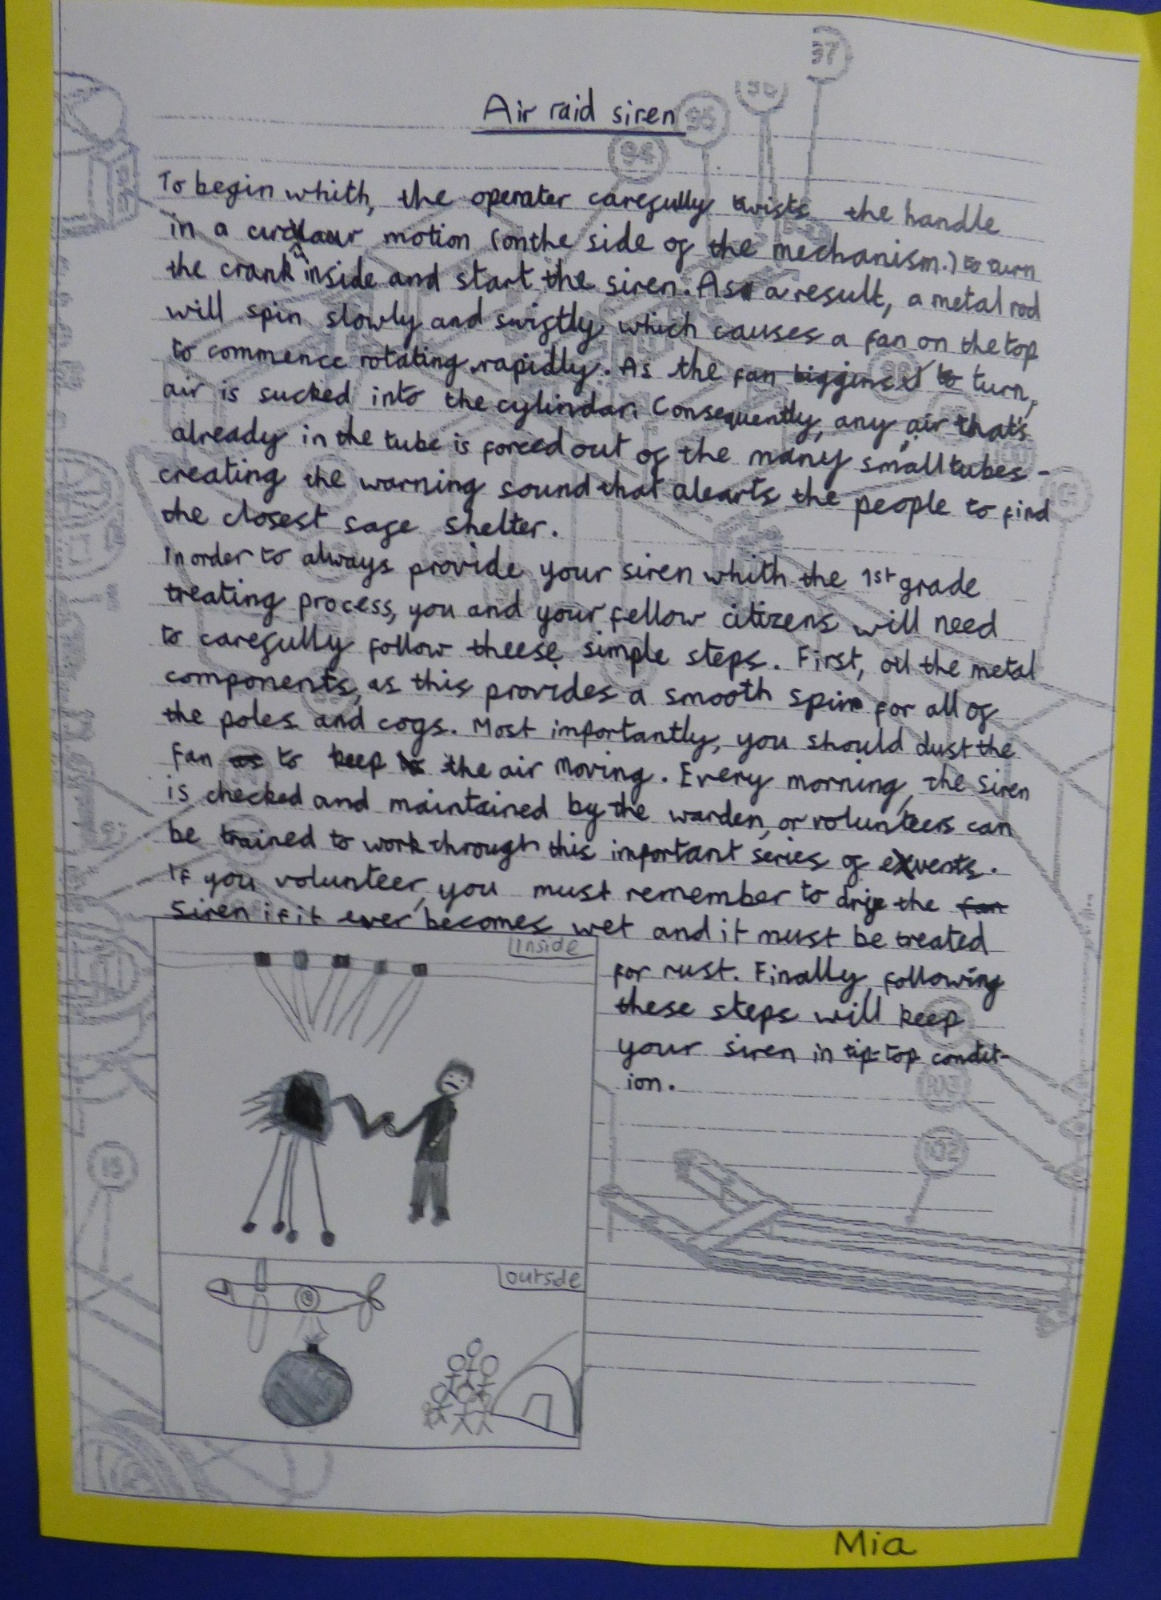 97
96
95
94
Air raid siren
To begin whith, the operater carefully twists the handle
in a motion (on the side of the mechanism.) to turn
the crank inside and start the siren. As a result, a metal rod
will spin slowly and swiftly which causes a fan on the top
to commence rotating rapidly. As the fan turn,
air is sucked into the cylindar. Consequently, any air that's
already in the tube is forced out of the many small tubes -
creating the warning sound that alearts the people to find
the closest safe shelter.
In order to always provide your siren whith the 1st grade
treating process, you and your fellow citizens will need
to carefully follow theese simple steps. First, oil the metal
components, as this provides a smooth spin for all of
the poles and cogs. Most importantly, you should dust the
fan to keep the air moving. Every morning, the siren
is checked and maintained by the warden, or volunteers can
be trained to work through this important series of events.
If you volunteer, you must remember to drie the fan
siren if it ever becomes wet and it must be treated
for rust. Finally, following
these steps will keep
your siren in tip-top condit-
ion.
inside
outside
103
102
15
Mia